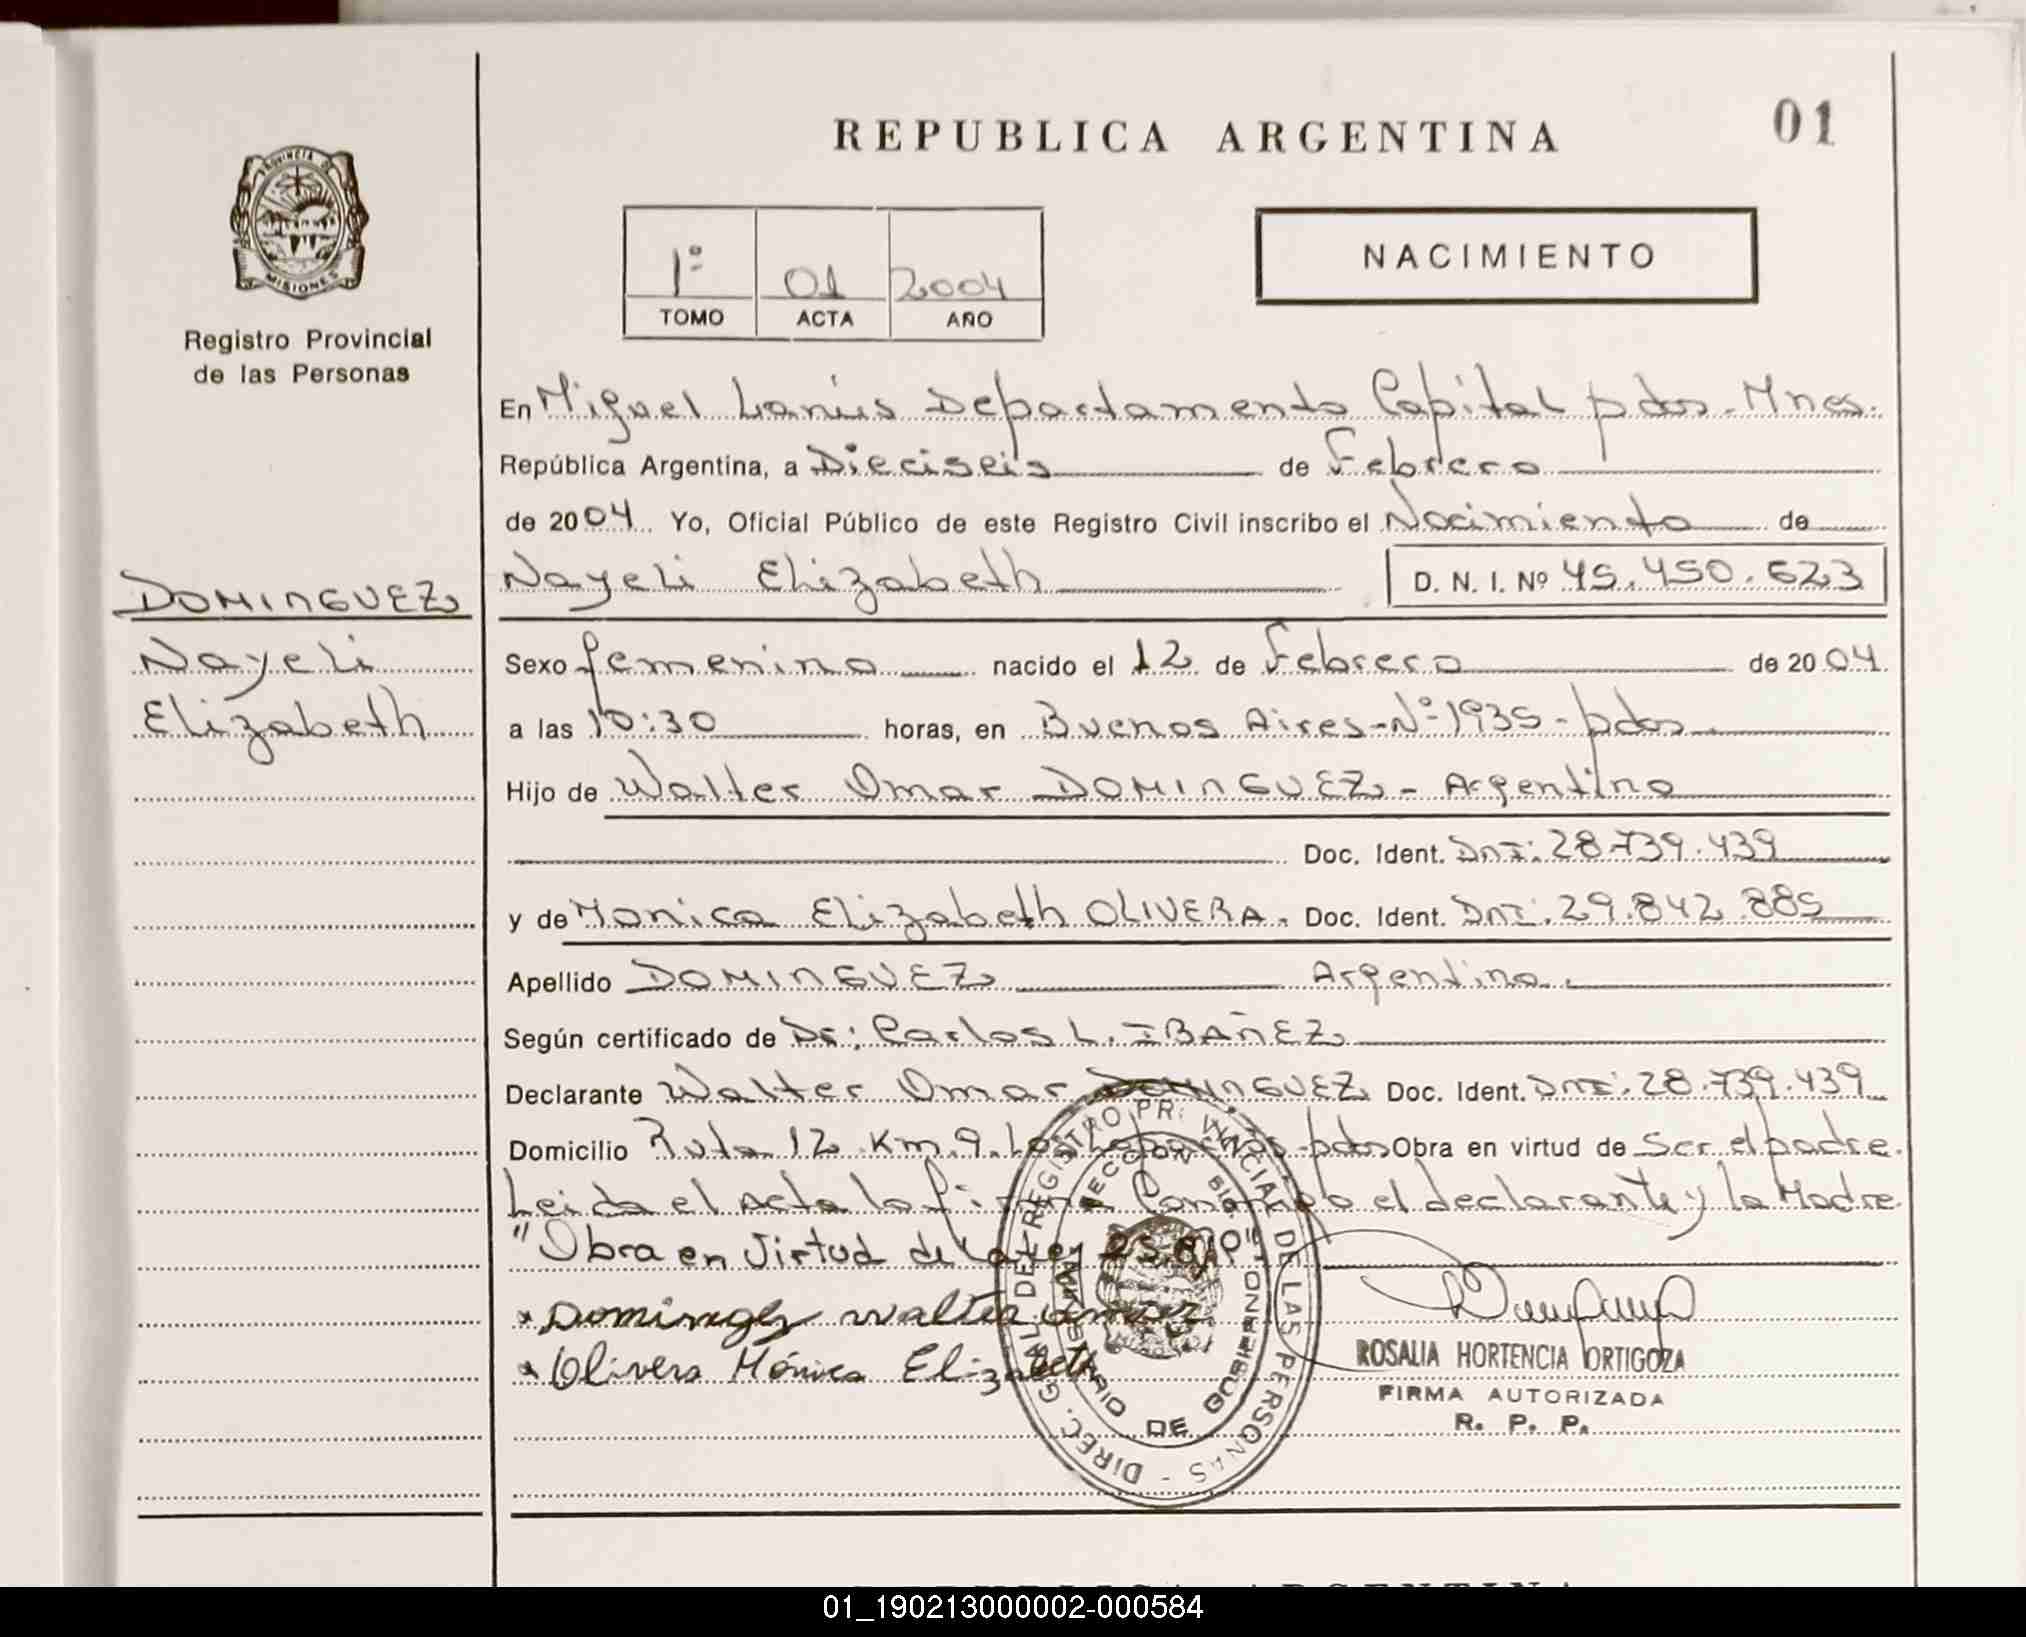 REPUBLICA ARGENTINA
01
PROVINCIA DE
MISIONES
Registro Provincial
de las Personas
1º 01 2004
TOMO ACTA AÑO
NACIMIENTO
En Miguel Lanús Departamento Capital pdas. Mnes.
República Argentina, a Dieciseis de Febrero
de 2004 Yo, Oficial Público de este Registro Civil inscribo el Nacimiento de
Nayeli Elizabeth D. N. I. Nº 45.450.623
DOMINGUEZ
Nayeli
Elizabeth
Sexo femenino nacido el 12 de Febrero de 2004
a las 10:30 horas, en Buenos Aires-Nº 1935-pdas
Hijo de Walter Omar DOMINGUEZ - Argentino
Doc. Ident. DNI: 28.739.439
y de Monica Elizabeth OLIVERA. Doc. Ident. DNI: 29.842.885
Apellido DOMINGUEZ Argentina.
Según certificado de Dr: Carlos L. IBAÑEZ
Declarante Walter Omar DOMINGUEZ Doc. Ident. DNI: 28.739.439
Domicilio Ruta 12 Km 9. -pdas Obra en virtud de Ser el padre.
Leida el Acta la firma el declarante y la Madre
"Obra en Virtud de la Ley
* Dominguez walter omar
* Olivera Mónica Elizabeth
DIREC. GRAL. DEL REGISTRO PROVINCIAL DE LAS PERSONAS -
MINISTERIO DE GOBIERNO
ROSALIA HORTENCIA ORTIGOZA
FIRMA AUTORIZADA
R. P. P.
01_190213000002-000584